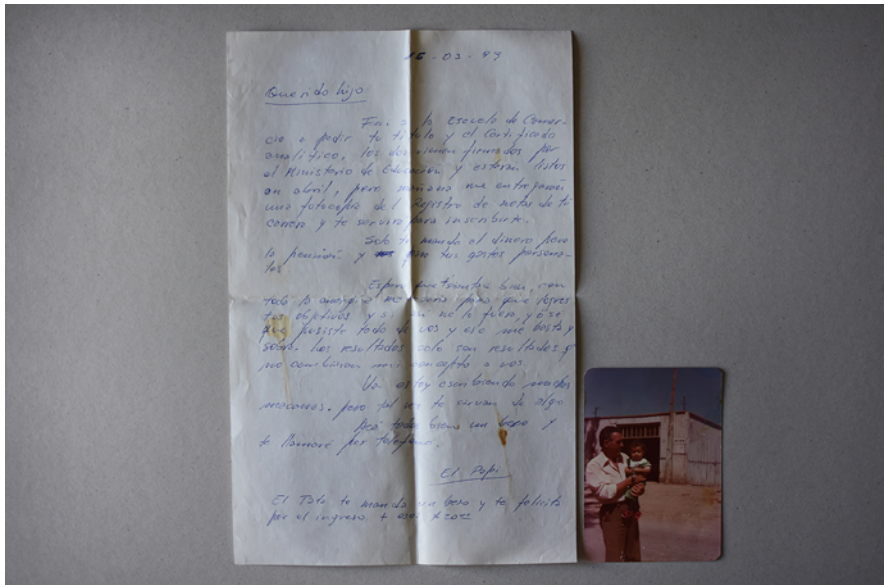 15-03-99
Querido hijo
Fui a la Escuela de Comer-
cio a pedir tu título y el Certificado
analítico. los dos vienen firmados por
el Ministerio de Educación y estarán listos
en abril, pero mañana me entregarán
una fotocopia del Registro de notas de tu
carrera y te servirá para inscribirte.
Solo te mando el dinero para
la pensión y para tus gastos persona-
les
Espero que bien, con
toda la energía necesaria para que logres
tus objetivos y si así no lo fuera, yo sé
que pusiste todo de vos y eso me basta y
sobra. Los resultados solo son resultados y
no cambiaran mi concepto a vos.
Ya estoy escribiendo muchos
macanas. pero tal vez te sirvan de algo
Acá todos bien un beso y
te llamaré por teléfono.
El Papi
El Tata te manda un beso y te felicita
por el ingreso +